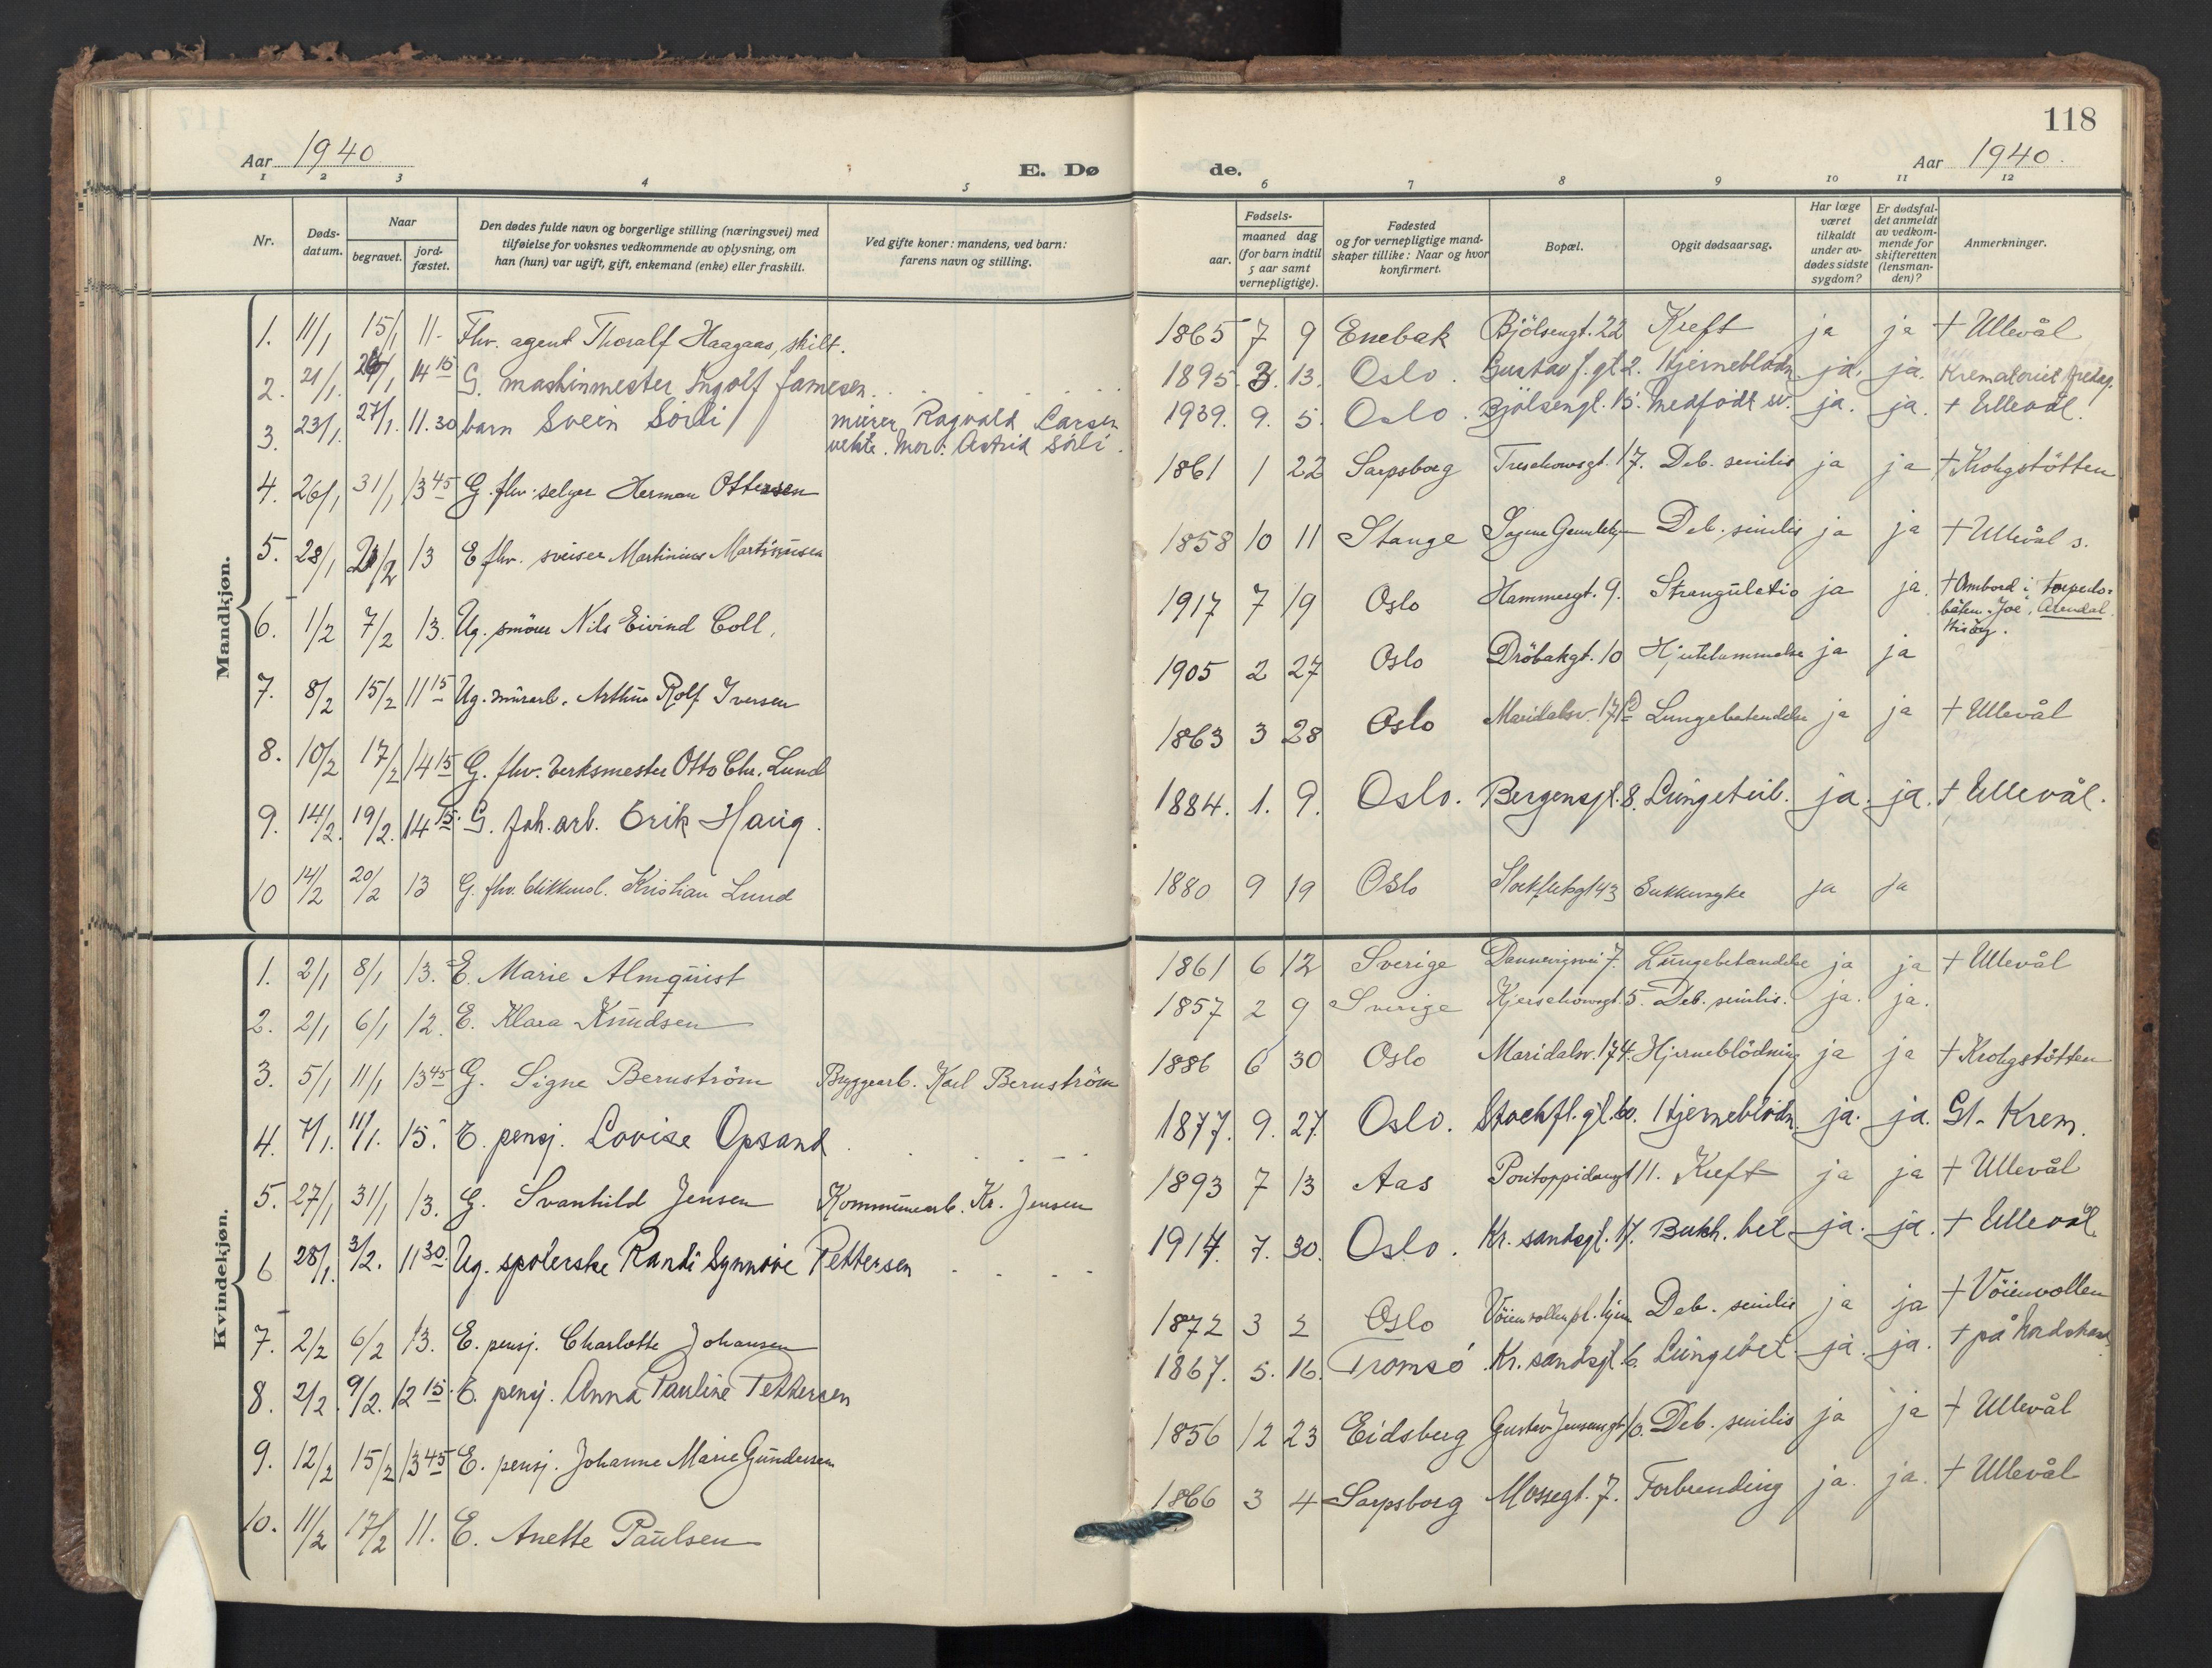 118
Aar 1940
E. Dø de.
Aar 1940.
1 2 3 4 5 6 7 8 9 10 11 12
Nr.
Døds-
datum.
Naar
begravet.
jord-
fæstet.
Den dødes fulde navn og borgerlige stilling (næringsvei) med
tilføielse for voksnes vedkommende av oplysning, om
han (hun) var ugift, gift, enkemand (enke) eller fraskilt.
Ved gifte koner: mandens, ved barn:
farens navn og stilling.
Fødsels-
aar.
maaned dag
(for barn indtil
5 aar samt
vernepligtige).
Fødested
og for vernepligtige mand-
skaper tillike: Naar og hvor
konfirmert.
Bopæl.
Opgit dødsaarsag.
Har læge
været
tilkaldt
under av-
dødes sidste
sygdom?
Er dødsfal-
det anmeldt
av vedkom-
mende for
skifteretten
(lensman-
den)?
Anmerkninger.
Mandkjøn.
1. 11/1 15/1 11- Fhv. agent Thoralf Haagaas, skilt. 1865 7 9 Enebak Bjölsengt. 22 Kreft ja ja † Ullevål
2. 21/1. 26/1 14 15 G. maskinmester Ingolf Jamesen. 1895. 3. 13. Oslo. Gustav J. gt 2. Hjerneblödn. ja, ja. Krematoriet
3. 23/1. 27/1. 11.30 barn Svein Sörli murer Ragvald Larsen 1939. 9. 5. Oslo. Bjölsengt. 15. medfödt sv. ja. ja. † Ullevål.
Mor: Astrid Sörli.
4. 26/1 31/1 13 45 G. fhv. selger Herman Ottersen 1861 1 22 Sarpsborg Treschowsgt. 17. Deb. senilis ja ja † Krohgstötten
5. 28/1 2/2 13 E fhv. sveiser Martinius Martinusen 1858 10 11 Stange Sagene Gamlehj. Deb. senilis ja ja † Ullevål s.
6. 1/2 7/2 13. Ug. smörer Nils Eivind Coll, 1917 7 19 Oslo Hammergt. 9. Strangulatio ja ja. † Ombord i torpedo-
båten "Jo", Arendal.
Hisöy.
7. 8/2 15/2 11 15 Ug. murarb. Arthur Rolf Iversen 1905 2 27 Oslo Dröbakgt. 10 Hjertelammelse ja ja
8. 10/2 17/2 14 15 G. fhv. Verksmester Otto Chr. Lund 1863 3 28 Oslo Maridalsv. 171 Lungebetendelse ja ja † Ullevål
9. 14/2. 19/2. 14 15. G. Joh. arb. Erik Haug. 1884. 1. 9. Oslo. Bergensgt. 8. Lungetub. ja. ja. † Ullevål.
10 14/2 20/2 13 G. fhv. blikkensl. Kristian Lund 1880 9 19 Oslo Stockflethsgt 43 Sukkersyke ja ja
Kvindekjøn.
1. 2/1 8/1 13. E. Marie Almquist 1861 6 12 Sverige Dannevigsvei 7. Lungebetendelse ja ja † Ullevål
2. 2/1 6/1 12. E. Klara Knudsen 1857 2 9 Sverige Kjerschowsgt. 5. Deb. senilis. ja. ja.
3. 5/1 11/1 13 45 G. Signe Bernström Bryggearb. Karl Bernström 1886 6 30 Oslo Maridalsv. 174. Hjerneblödning ja ja † Krohgstötten
4. 7/1. 11/1. 15. E. pensj. Lovise Opsand 1877. 9. 27. Oslo. Stockfl. gt. 60. Hjerneblödn. ja. ja. Gl. Krem.
5. 27/1 31/1 13. G. Svanhild Jensen Kommunearb. Kr. Jensen 1893 7 13 Aas Pontoppidansgt 11. Kreft ja ja † Ullevål
6 28/1. 3/2. 11 30. Ug. spolerske Randi Synnöve Pettersen 1914 7. 30. Oslo. Kr. sandsgt. 17. Bukh. bet ja. ja. † Ullevål.
7. 2/2 6/2 13. E. pensj. Charlotte Johansen 1872 3 2 Oslo Vöienvollen pl. hjem Deb. senilis ja ja † Vöienvollen
8. 2/2. 9/2. 12 15. E. pensj. Anna Pauline Pettersen 1867. 5. 16. Tromsö Kr. sandsgt. 6. Lungebet. ja. ja. † på
9. 12/2 15/2 13 45 E. pensj. Johanne Marie Gundersen 1856 12 23 Eidsberg Gustav Jensensgt. 10. Deb. senilis ja ja † Ullevål
10. 11/2 17/2 11. E. Anette Paulsen 1866 3 4 Sarpsborg Mossegt. 7. Forbrending ja. ja. † Ullevål